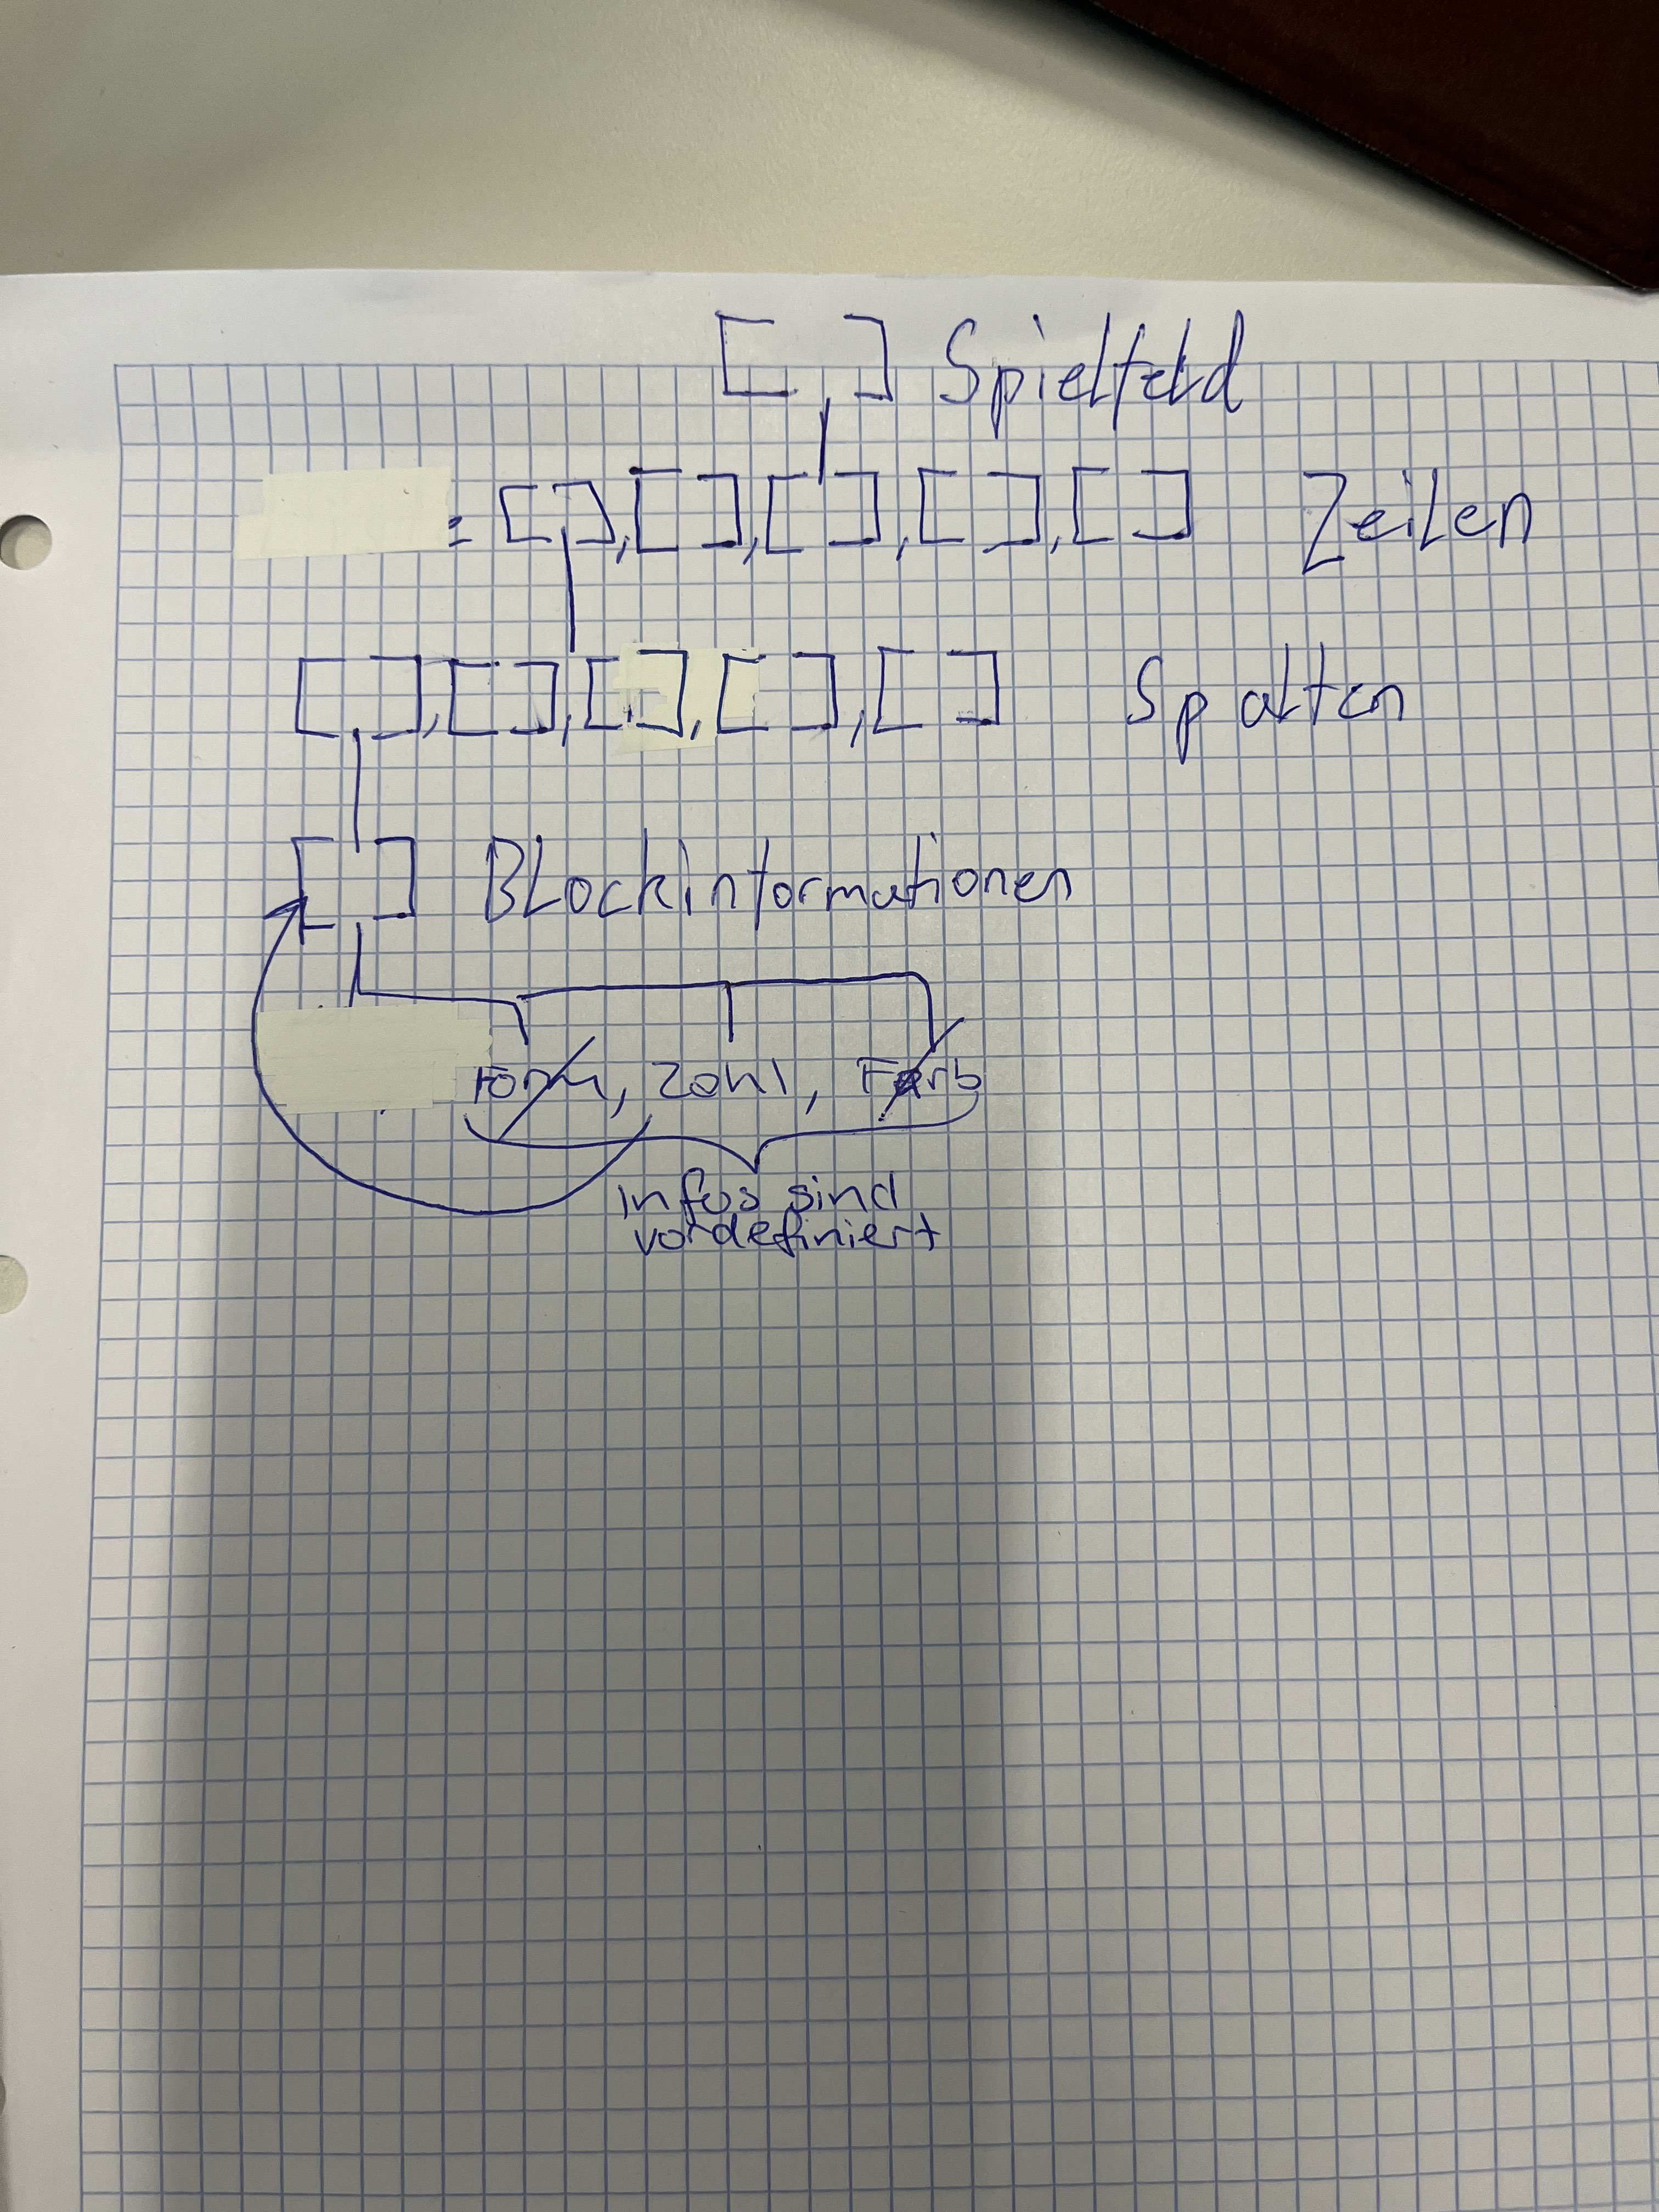 [ ] Spielfeld
= [ ], [ ], [ ], [ ], [ ] Zeilen
[ ], [ ], [ ], [ ], [ ] Spalten
[ ] Blockinformationen
Form, Zahl, Farb
Infos sind
vordefiniert